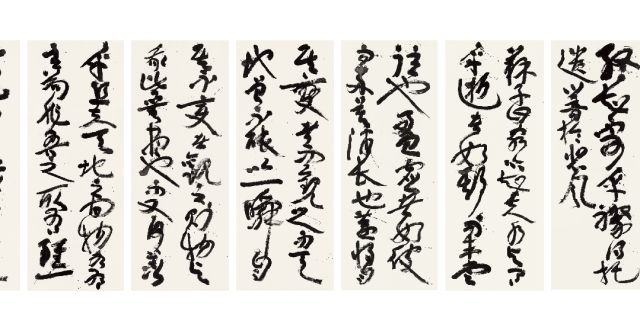 知不可乎驟得托
遺響於悲風
蘇子曰客亦知夫水與月
乎逝者如斯而未嘗
往也盈虛者如彼
而卒莫消長也蓋將自
其變者而觀之則天
地曾不能以一瞬自
其不變者而觀之則物與
我皆無盡也而又何羨
乎且夫天地之間物各有
主苟非吾之所有雖一